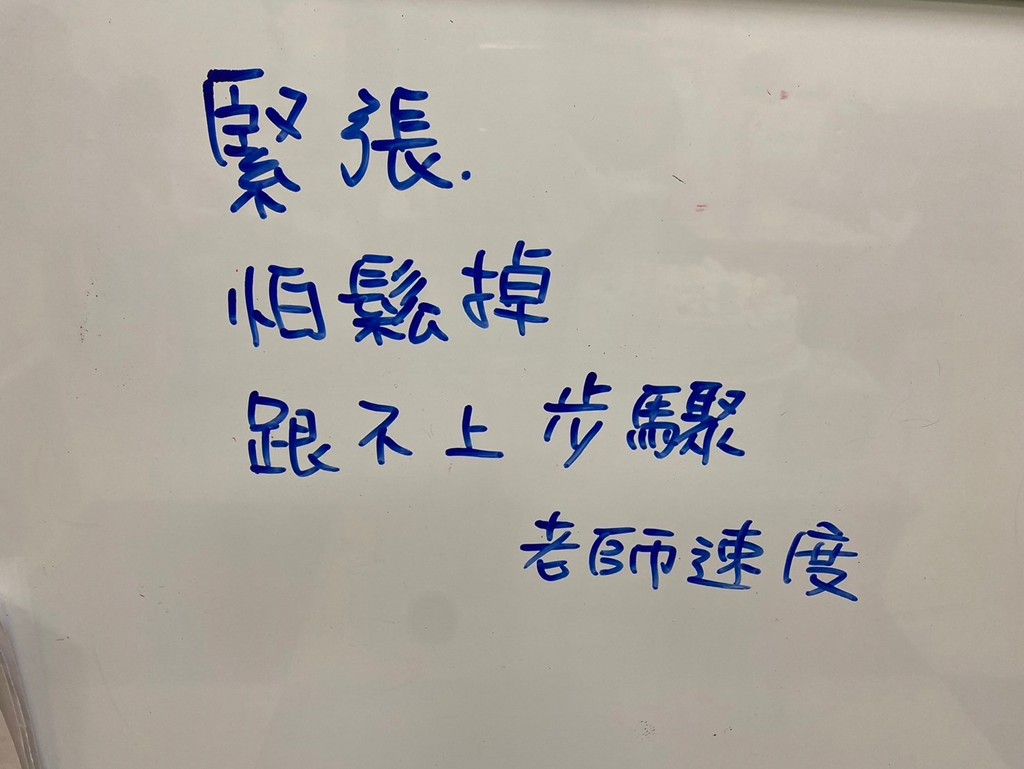 緊張.
怕鬆掉
跟不上步驟
老師速度